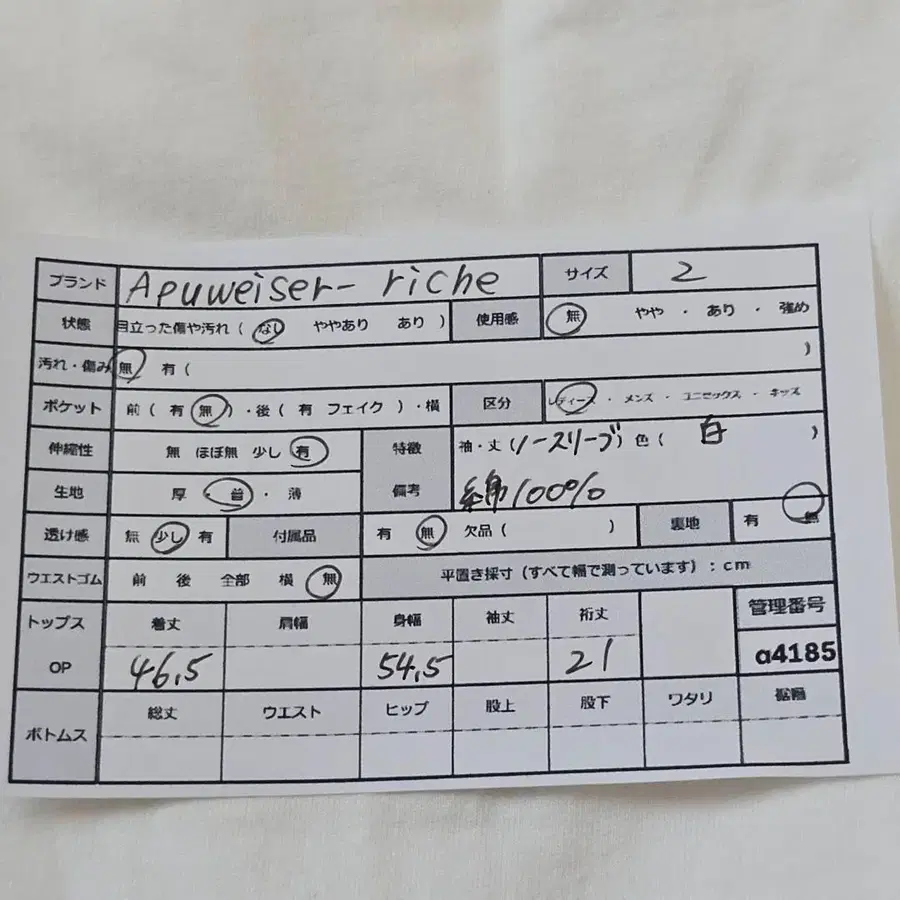 ブランド Apuweiser-riche サイズ 2
状態 目立った傷や汚れ（ なし ややあり あり ） 使用感 無 やや ・ あり ・ 強め
汚れ・傷み 無 有（ ）
ポケット 前（ 有 無 ）・後（ 有 フェイク ）・横 区分 レディース ・ メンズ ・ ユニセックス ・ キッズ
伸縮性 無 ほぼ無 少し 有 特徴 袖・丈（ノースリーブ）色（ 白 ）
生地 厚 ・ 普 ・ 薄 備考 綿100%
透け感 無 少し 有 付属品 有 無 欠品（ ） 裏地 有 無
ウエストゴム 前 後 全部 横 無 平置き採寸（すべて幅で測っています）：cm
トップス 着丈 肩幅 身幅 袖丈 裄丈 管理番号
OP 46.5 54.5 21 a4185
ボトムス 総丈 ウエスト ヒップ 股上 股下 ワタリ 裾幅